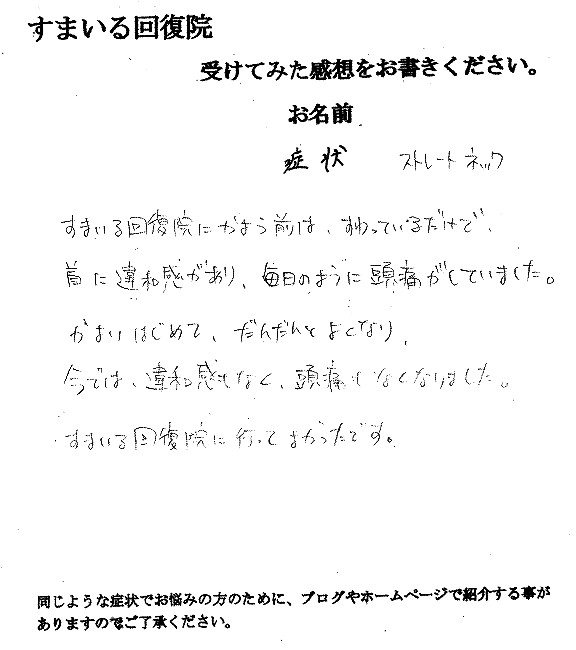 すまいる回復院
受けてみた感想をお書きください。
お名前
症状 ストレートネック
すまいる回復院にかよう前は、すわっているだけで、
首に違和感があり、毎日のように頭痛がしていました。
かよいはじめて、だんだんとよくなり、
今では、違和感もなく、頭痛もなくなりました。
すまいる回復院に行ってよかったです。
同じような症状でお悩みの方のために、ブログやホームページで紹介する事が
ありますのでご了承ください。